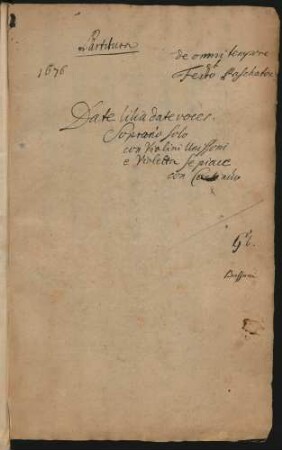 Partitura
de omni tempore
et
1676
Festo Paschatos
Date lilia date voces.
Soprano solo
con Violini Unissoni
e Violetta se piace
con